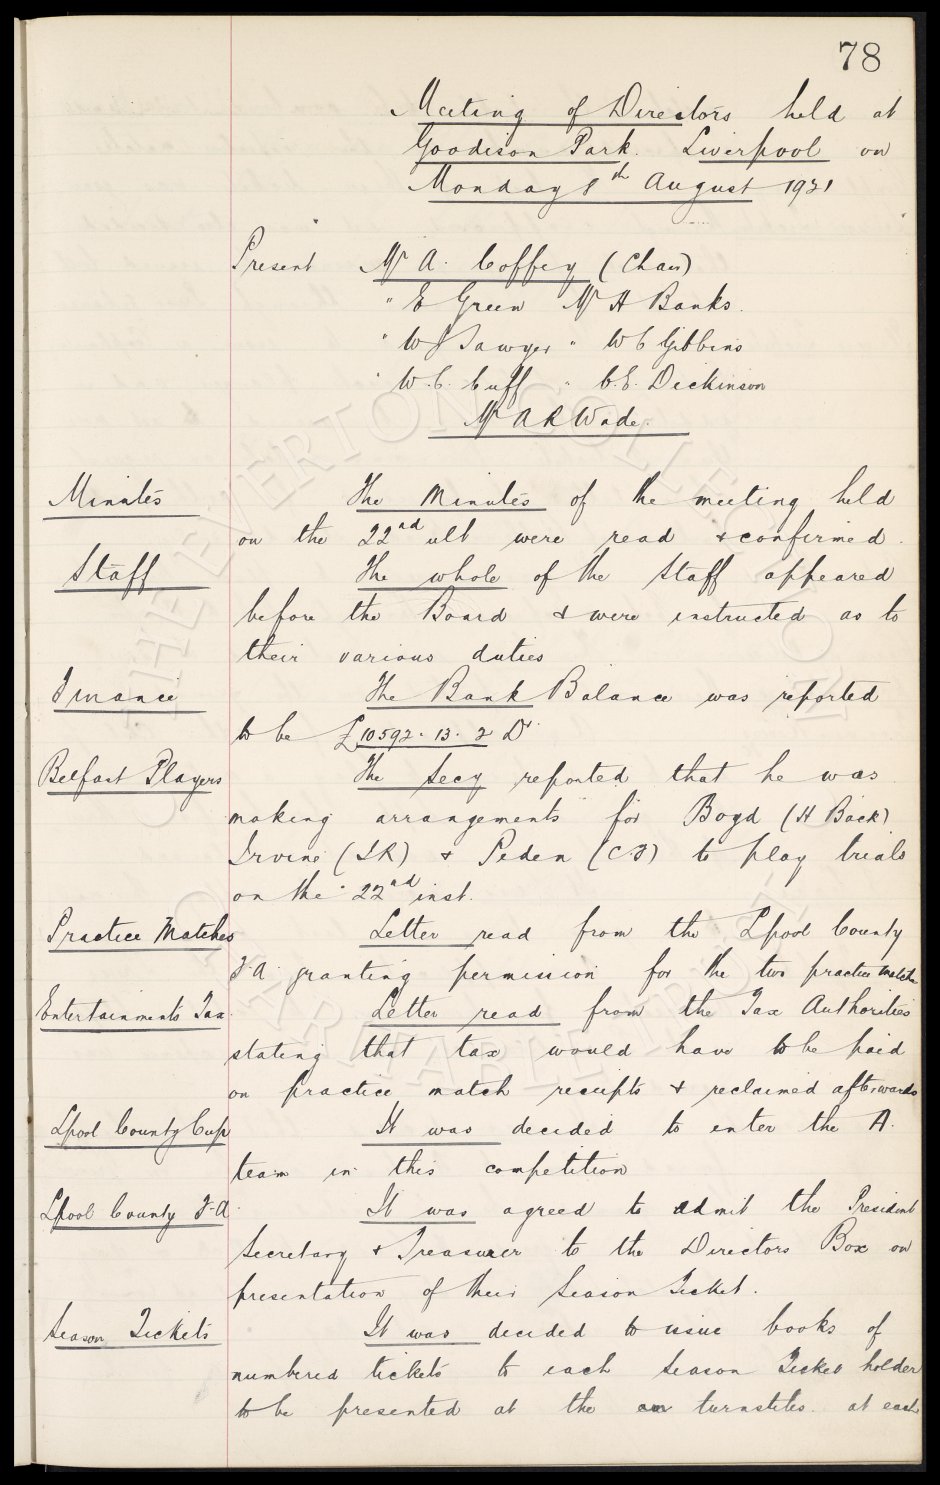 78
Meeting of Directors held at
Goodison Park. Liverpool on
Monday 8th August 1921
Present Mr A. Coffey (Chair)
" E Green Mr H Banks.
" W J Sawyer " W C Gibbins
" W. C. Cuff " C. E. Dickinson
Mr A R Wade.
Minutes The Minutes of the meeting held
on the 22nd ult were read & confirmed.
Staff The whole of the Staff appeared
before the Board & were instructed as to
their various duties
Finance The Bank Balance was reported
to be £10592. 13. 2 Dr.
Belfast Players The Secy reported that he was
making arrangements for Boyd (H Back)
Irvine (IR) & Peden (C.F) to play trials
on the 22nd inst.
Practice Matches Letter read from the Lpool County
F.A. granting permission for the two practice matches
Entertainments Tax. Letter read from the Tax Authorities
stating that tax would have to be paid
on practice match receipts & reclaimed afterwards
Lpool County Cup It was decided to enter the A.
team in this competition
Lpool County F.A. It was agreed to admit the President
Secretary & Treasurer to the Directors Box on
presentation of their Season Ticket.
Season Tickets It was decided to issue books of
numbered tickets to each Season Ticket holder
to be presented at the turnstiles. at each
THE EVERTON COLLECTION
CHARITABLE TRUST